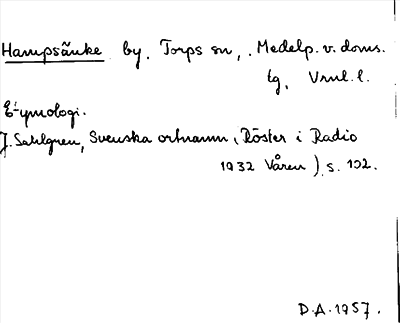 Hampsänke by. Torps sn, Medelp. v. doms.
tg, Vrnl. l.
Etymologi.
J. Sahlgren, Svenska ortnamn (Röster i Radio
1932 Våren) s. 192.
D.A. 1957.